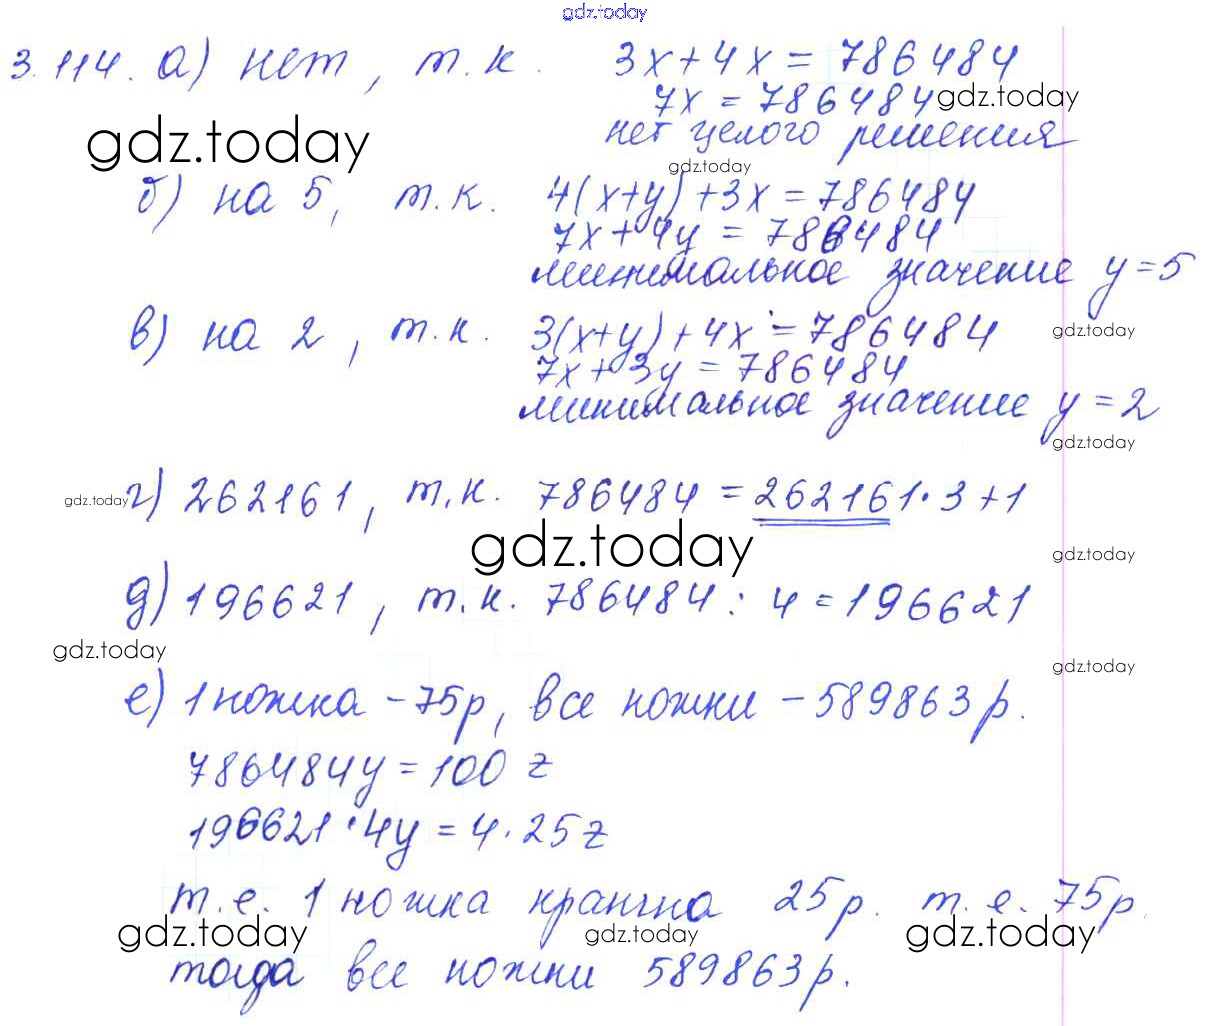 gdz.today
3.114. а) нет, т.к. 3x+4x = 786484
7x = 786484 gdz.today
gdz.today нет целого решения
gdz.today
б) на 5, т.к. 4(x+y)+3x=786484
7x+4y = 786484
минимальное значение y=5
в) на 2, т.к. 3(x+y)+4x=786484 gdz.today
7x+3y = 786484
минимальное значение y=2
gdz.today
gdz.today г) 262161, т.к. 786484 = 262161·3+1
gdz.today gdz.today
д) 196621, т.к. 786484 : 4 = 196621
gdz.today gdz.today
е) 1 ножка - 75р, все ножки - 589863 р.
786484y = 100 z
196621·4y = 4·25z
т.е. 1 ножка кратна 25р. т.е. 75р.
gdz.today gdz.today gdz.today
тогда все ножки 589863р.